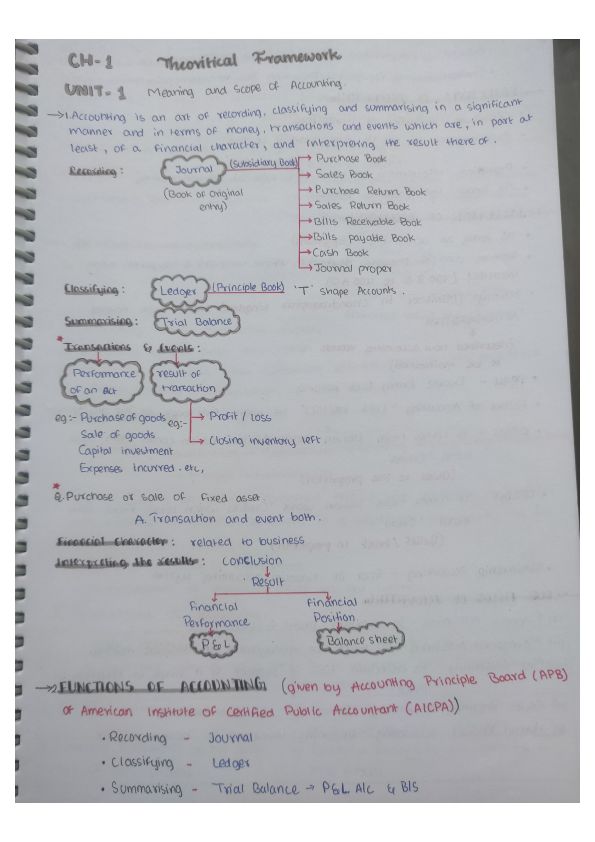 CH-1 Theoritical Framework
UNIT-1 Meaning and Scope of Accounting.
→1.Accounting is an art of recording, classifying and summarising in a significant
manner and in terms of money, transactions and events which are, in part at
least, of a financial character, and interpreting the result there of.
Recording: Journal (Subsidiary Book) → Purchase Book
(Book of original entry) → Sales Book
→ Purchase Return Book
→ Sales Return Book
→ Bills Receivable Book
→ Bills payable Book
→ Cash Book
→ Journal proper
Classifying: Ledger (Principle Book) 'T' shape Accounts.
Summarising: Trial Balance
* Transactions & Events:
Performance of an Act
result of transaction
eg:- Purchase of goods eg:- → Profit / Loss
Sale of goods → Closing inventory left
Capital investment
Expenses incurred. etc,
* Q.Purchase or sale of fixed asset.
A. Transaction and event both.
Financial Character: related to business
Interpreting the results: conclusion
Result
Financial Performance
Financial Position
P & L
Balance sheet
→2.FUNCTIONS OF ACCOUNTING (given by Accounting Principle Board (APB)
of American Institute of Certified Public Accountant (AICPA))
• Recording - Journal
• Classifying - Ledger
• Summarising - Trial Balance → P&L A/c & B/S